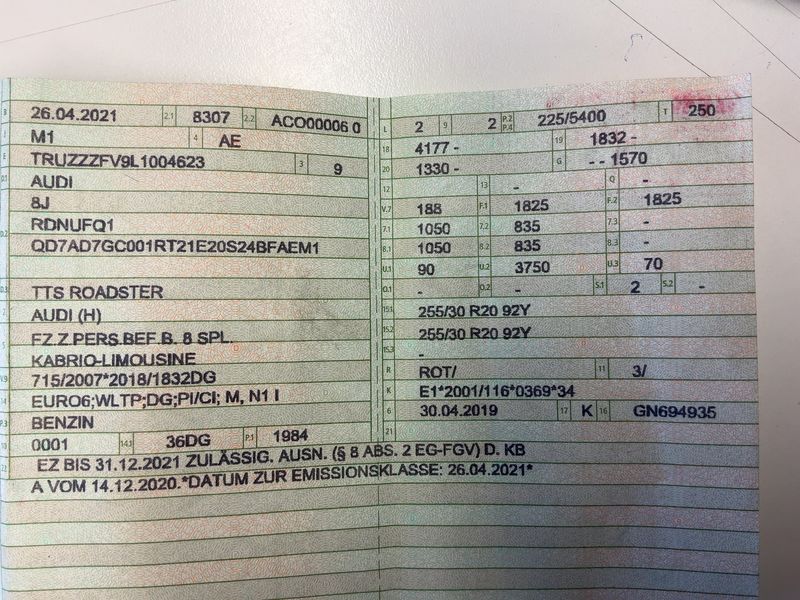 B 26.04.2021 2.1 8307 2.2 ACO00006 0
J M1 4 AE
E TRUZZZFV9L1004623 3 9
D.1 AUDI
8J
D.2 RDNUFQ1
QD7AD7GC001RT21E20S24BFAEM1
D.3 TTS ROADSTER
2 AUDI (H)
5 FZ.Z.PERS.BEF.B. 8 SPL.
KABRIO-LIMOUSINE
V.9 715/2007*2018/1832DG
14 EURO6;WLTP;DG;PI/CI; M, N1 I
P.3 BENZIN
10 0001 14.1 36DG P.1 1984
22 EZ BIS 31.12.2021 ZULÄSSIG. AUSN. (§ 8 ABS. 2 EG-FGV) D. KB
A VOM 14.12.2020.*DATUM ZUR EMISSIONSKLASSE: 26.04.2021*
L 2 9 2 P.2 P.4 225/5400 T 250
18 4177 - 19 1832 -
20 1330 - G - - 1570
12 - 13 - Q -
V.7 188 F.1 1825 F.2 1825
7.1 1050 7.2 835 7.3 -
8.1 1050 8.2 835 8.3 -
U.1 90 U.2 3750 U.3 70
O.1 - O.2 - S.1 2 S.2 -
15.1 255/30 R20 92Y
15.2 255/30 R20 92Y
15.3 -
R ROT/ 11 3/
K E1*2001/116*0369*34
6 30.04.2019 17 K 16 GN694935
21